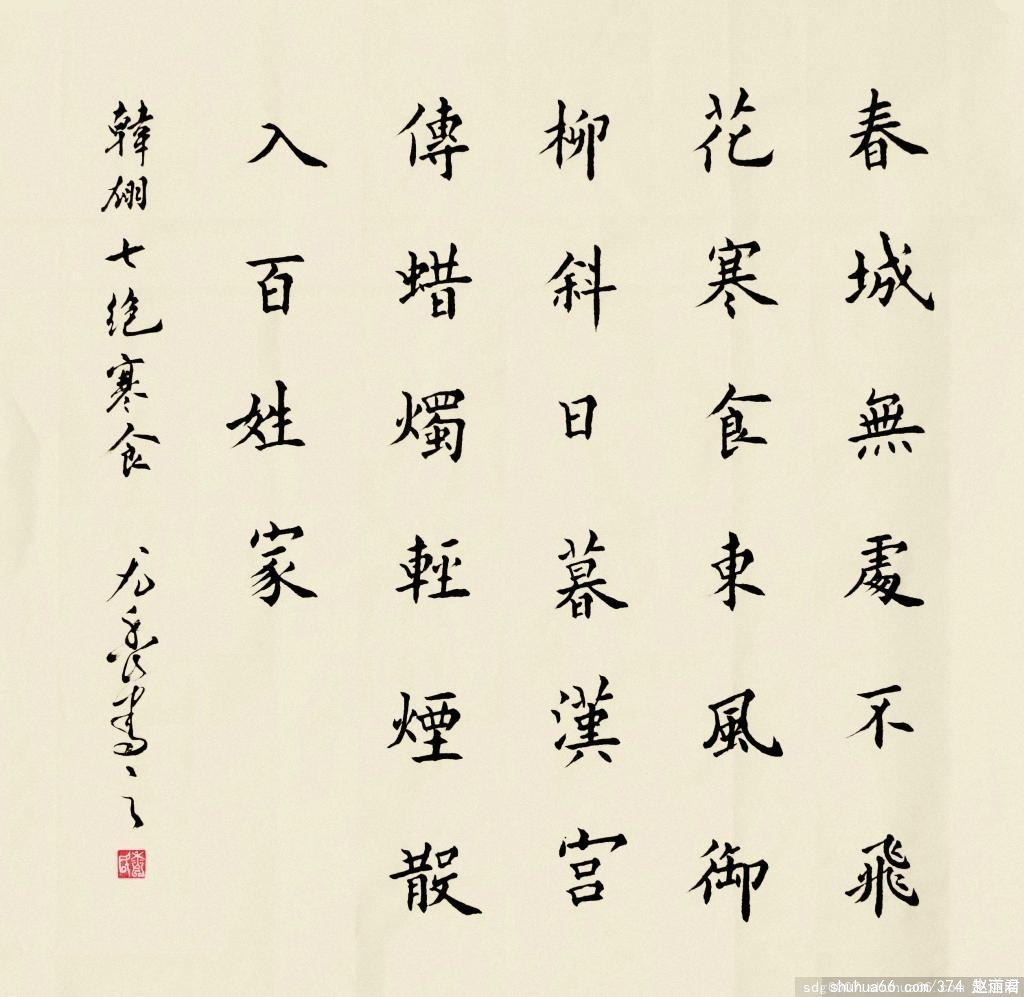 春城無處不飛
花寒食東風御
柳斜日暮漢宫
傳蜡燭輕煙散
入百姓家
韓翃七绝寒食 尤
書
shuhua66 com/374 赵丽君